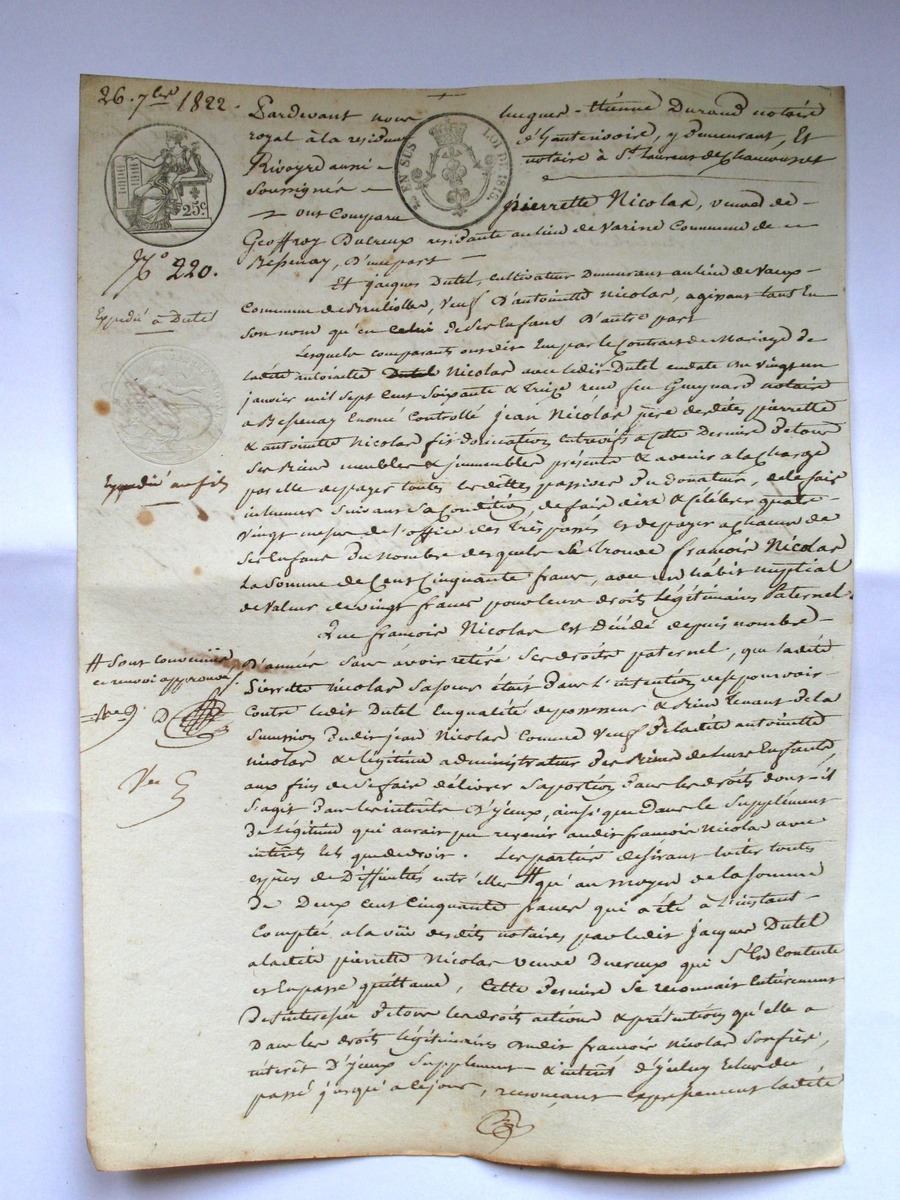 26. 7bre 1822.
Pardevant nous Jacques-Etienne Durand notaire
royal à la residence d'hauterivoire, y demeurant, Et
Rivoyre aussi notaire à St. Laurent de Chamousset
soussignés
ont Comparu pierrette Nicolas, veuve de
Geoffroy Ducreux residante au lieu de Varine Commune de
Bessenay, D'une part
EN SUS
LOI DE 1816.
25c
No 220.
Expedié à Dutel
Expedié au fils
Et jacques Dutel, cultivateur Demeurant au lieu de Vaux
Commune de Brullioles, Veuf D'antoinette Nicolas, agissant tant En
son nom qu'en celui de ses Enfans D'autre part
Lesquels comparants ont dit que par le Contrat de Mariage de
ladite antoinette Dutel Nicolas avec ledit Dutel en date du vingt un
janvier mil sept Cent Soixante & treize reçu feu Guignard notaire
a Bessenay Enoncé Controllé jean Nicolas père desdites pierrette
& antoinette Nicolas fit donnation entrevifs a cette Derniere de tous
ses Biens meubles & immeubles présents & avenir a la Charge
par elle de payer toutes les dettes passives du donateur, de le faire
inhumer suivant sa Condition, de faire dire & Célébrer quatre
vingt messes de l'office des Trépassés et de payer a chacun de
ses Enfans Du nombre desquels se trouve françois Nicolas
la Somme de Cent Cinquante francs, avec un habit nuptial
de Valeur de vingt francs pour leurs droits légitimaires Paternel.
Que françois Nicolas est Décédé depuis nombre
D'années sans avoir retiré ses droits paternel, que ladite
Pierrette Nicolas sa soeur était Dans l'intention de se pourvoir
Contre ledit Dutel En qualité de possesseur & Bien Tenant de la
Succession Dudit jean Nicolas Comme Veuf de ladite antoinette
nicolas & légitime administrateur Des Biens de leurs Enfants,
aux fins de se faire délivrer sa portion Dans les droits dont il
s'agit Dans les intérêts D'yceux, ainsi que Dans le Supplément
De légitime qui aurait pu revenir audit françois Nicolas avec
intérêts tels que de droit. Les parties desirant Eviter toutes
espèces de Difficultés entr'elles # qu'au moyen de la somme
De Deux Cent Cinquante francs qui a été à l'instant
Comptée a la vüe desdits notaires par ledit jacques Dutel
a ladite pierrette Nicolas veuve Ducreux qui S'en Contente
et En passe quittance, Cette Derniere se reconnait Entierement
Desinteressée De tous les droits actions & prétentions qu'elle a
Dans les droits légitimaires Dudit françois Nicolas son frère,
intérêts D'yceux Supplément & intérêts d'yceluy Echus du
passé jusqu'à ce jour, renonçant expressement ladite
# Sont convenues
ce renvoi approuvé
Ve